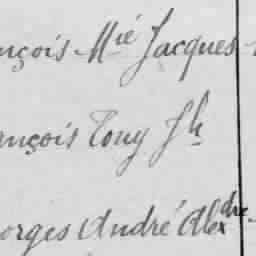 nçois Mie Jacques
nçois Tony Jh
orges André Alexdre